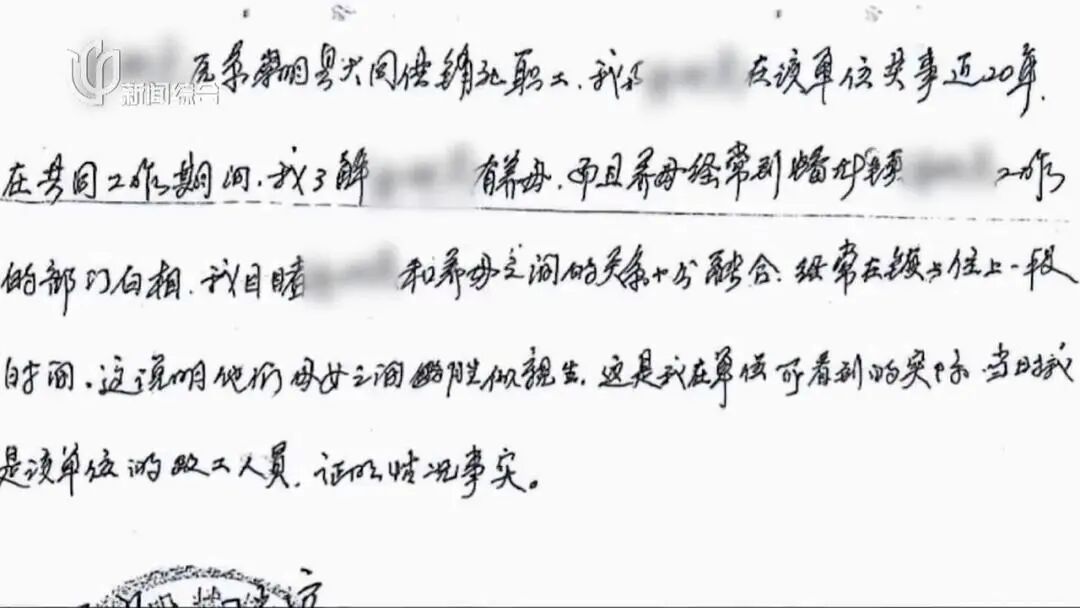 新闻综合
原系崇明县大同供销社职工.我和 在该单位共事近20年.
在共同工作期间.我了解 有养母.而且养母经常到 镇 工作
的部门白相.我目睹 和养母之间的关系十分融合:经常在镇上住上一段
时间.这说明他们母女之间 胜似亲生.这是我在单位所看到的实际.当时我
是该单位的政工人员.证明情况事实。